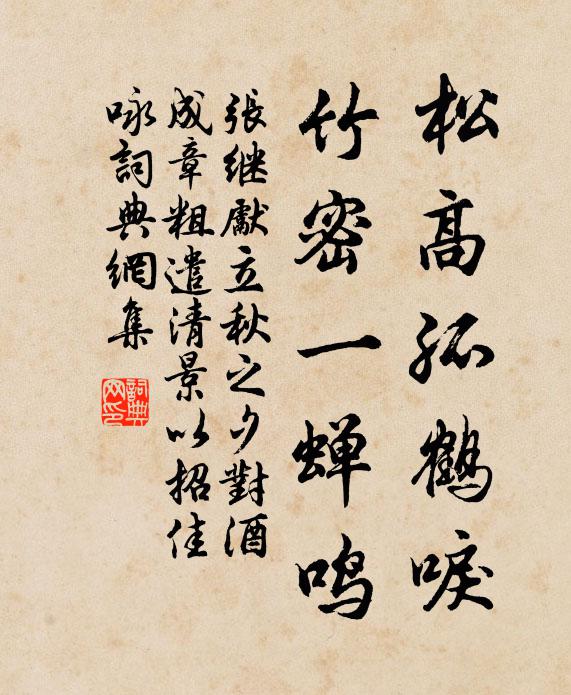 松高孤鶴唳
竹密一蝉鸣
張继獻立秋之夕對酒
成章粗遣清景以招佳
咏詞典網集
詞典网印